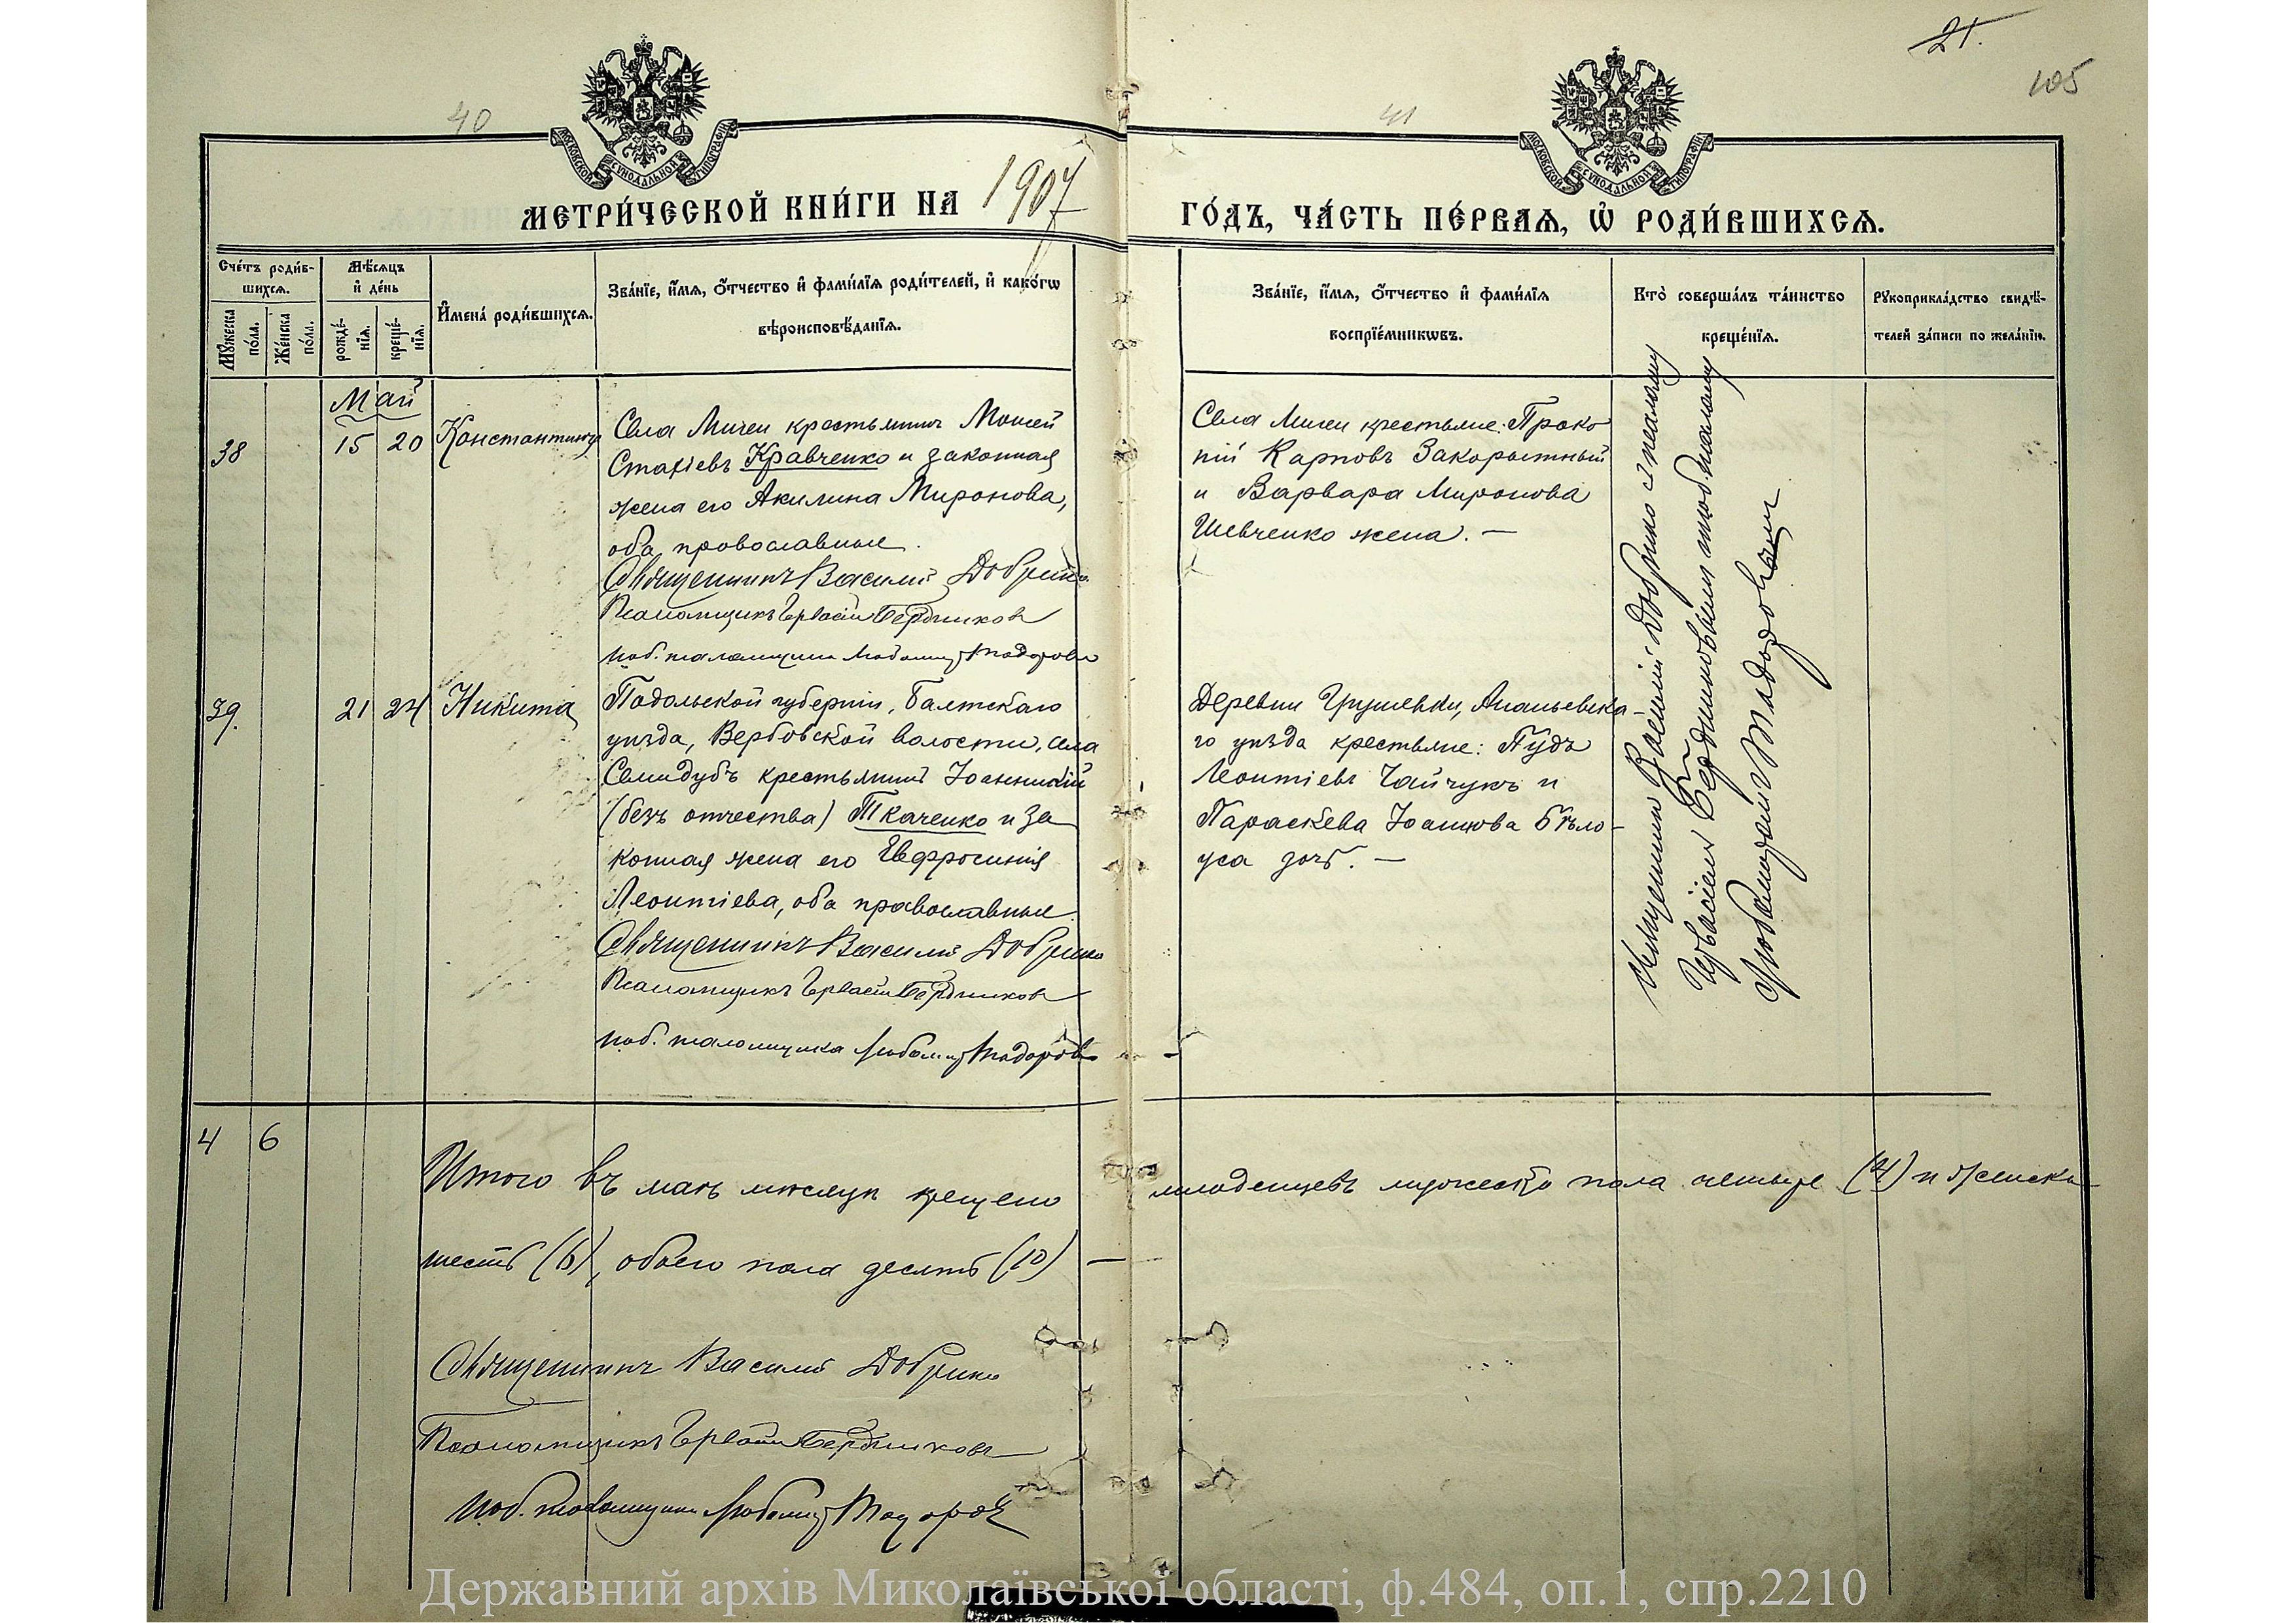 21.
105
40
41
МОСКОВСКОЙ СѴНОДАЛЬНОЙ ТИПОГРАФІИ
МОСКОВСКОЙ СѴНОДАЛЬНОЙ ТИПОГРАФІИ
МЕТРИ́ЧЕСКОЙ КНИ́ГИ НА 1907
ГО́ДЪ, ЧА́СТЬ ПЕ́РВАѦ, Ѡ҆ РОДИ́ВШИХСѦ.
Сче́тъ роди́в-
шихсѧ.
Мꙋ́жеска по́ла.
Же́нска по́ла.
Мѣ́сѧцъ
и҆ де́нь
рожде́-
нїѧ.
креще́-
нїѧ.
И҆мена̀ роди́вшихсѧ.
Зва́нїе, и҆́мѧ, ѻ҆́тчество и҆ фами́лїѧ роди́телей, и҆ како́гѡ
вѣроисповѣ́данїѧ.
Зва́нїе, и҆́мѧ, ѻ҆́тчество и҆ фами́лїѧ
воспрїе́мникѡвъ.
Кто̀ соверша́лъ та́инство
креще́нїѧ.
Рꙋкоприкла́дство свидѣ́-
телей за́писи по жела́нїю.
Май
38
15 20
Константинъ
Села Мигеи крестьянинъ Моисей
Стахіевъ Кравченко и законная
жена его Акилина Миронова,
оба провославные.
Священникъ Василій Добрино
Псаломщикъ Бердников
Села Мигеи крестьяне: Проко
пій Карповъ Закорытный
и Варвара Миронова
Шевченко жена. —
Священник Василій Добрино с псаломщ
39.
21 24
Никита
Подольской губерніи, Балтскаго
уѣзда, Вербовской волости, села
Семидубъ крестьянинъ Іоанникій
(безъ отчества) Ткаченко и за
конная жена его Евфросинія
Леонтіева, оба православные
Священникъ Василій Добрино
Псаломщикъ Бердников
псаломщика
Деревни Грушевки, Ананьевска-
го уѣзда крестьяне: Пудъ
Леонтіевъ Чайчукъ и
Параскева Іоаннова Бѣло-
уса дочь. —
4 6
Итого въ маѣ мѣсяцѣ крещено
младенцевъ мужеско пола четыре (4) и женска
шесть (6), обоего пола десять (10) —
Священникъ Василій Добрино
Псаломщикъ Бердниковъ
Державний архів Миколаївської області, ф.484, оп.1, спр.2210